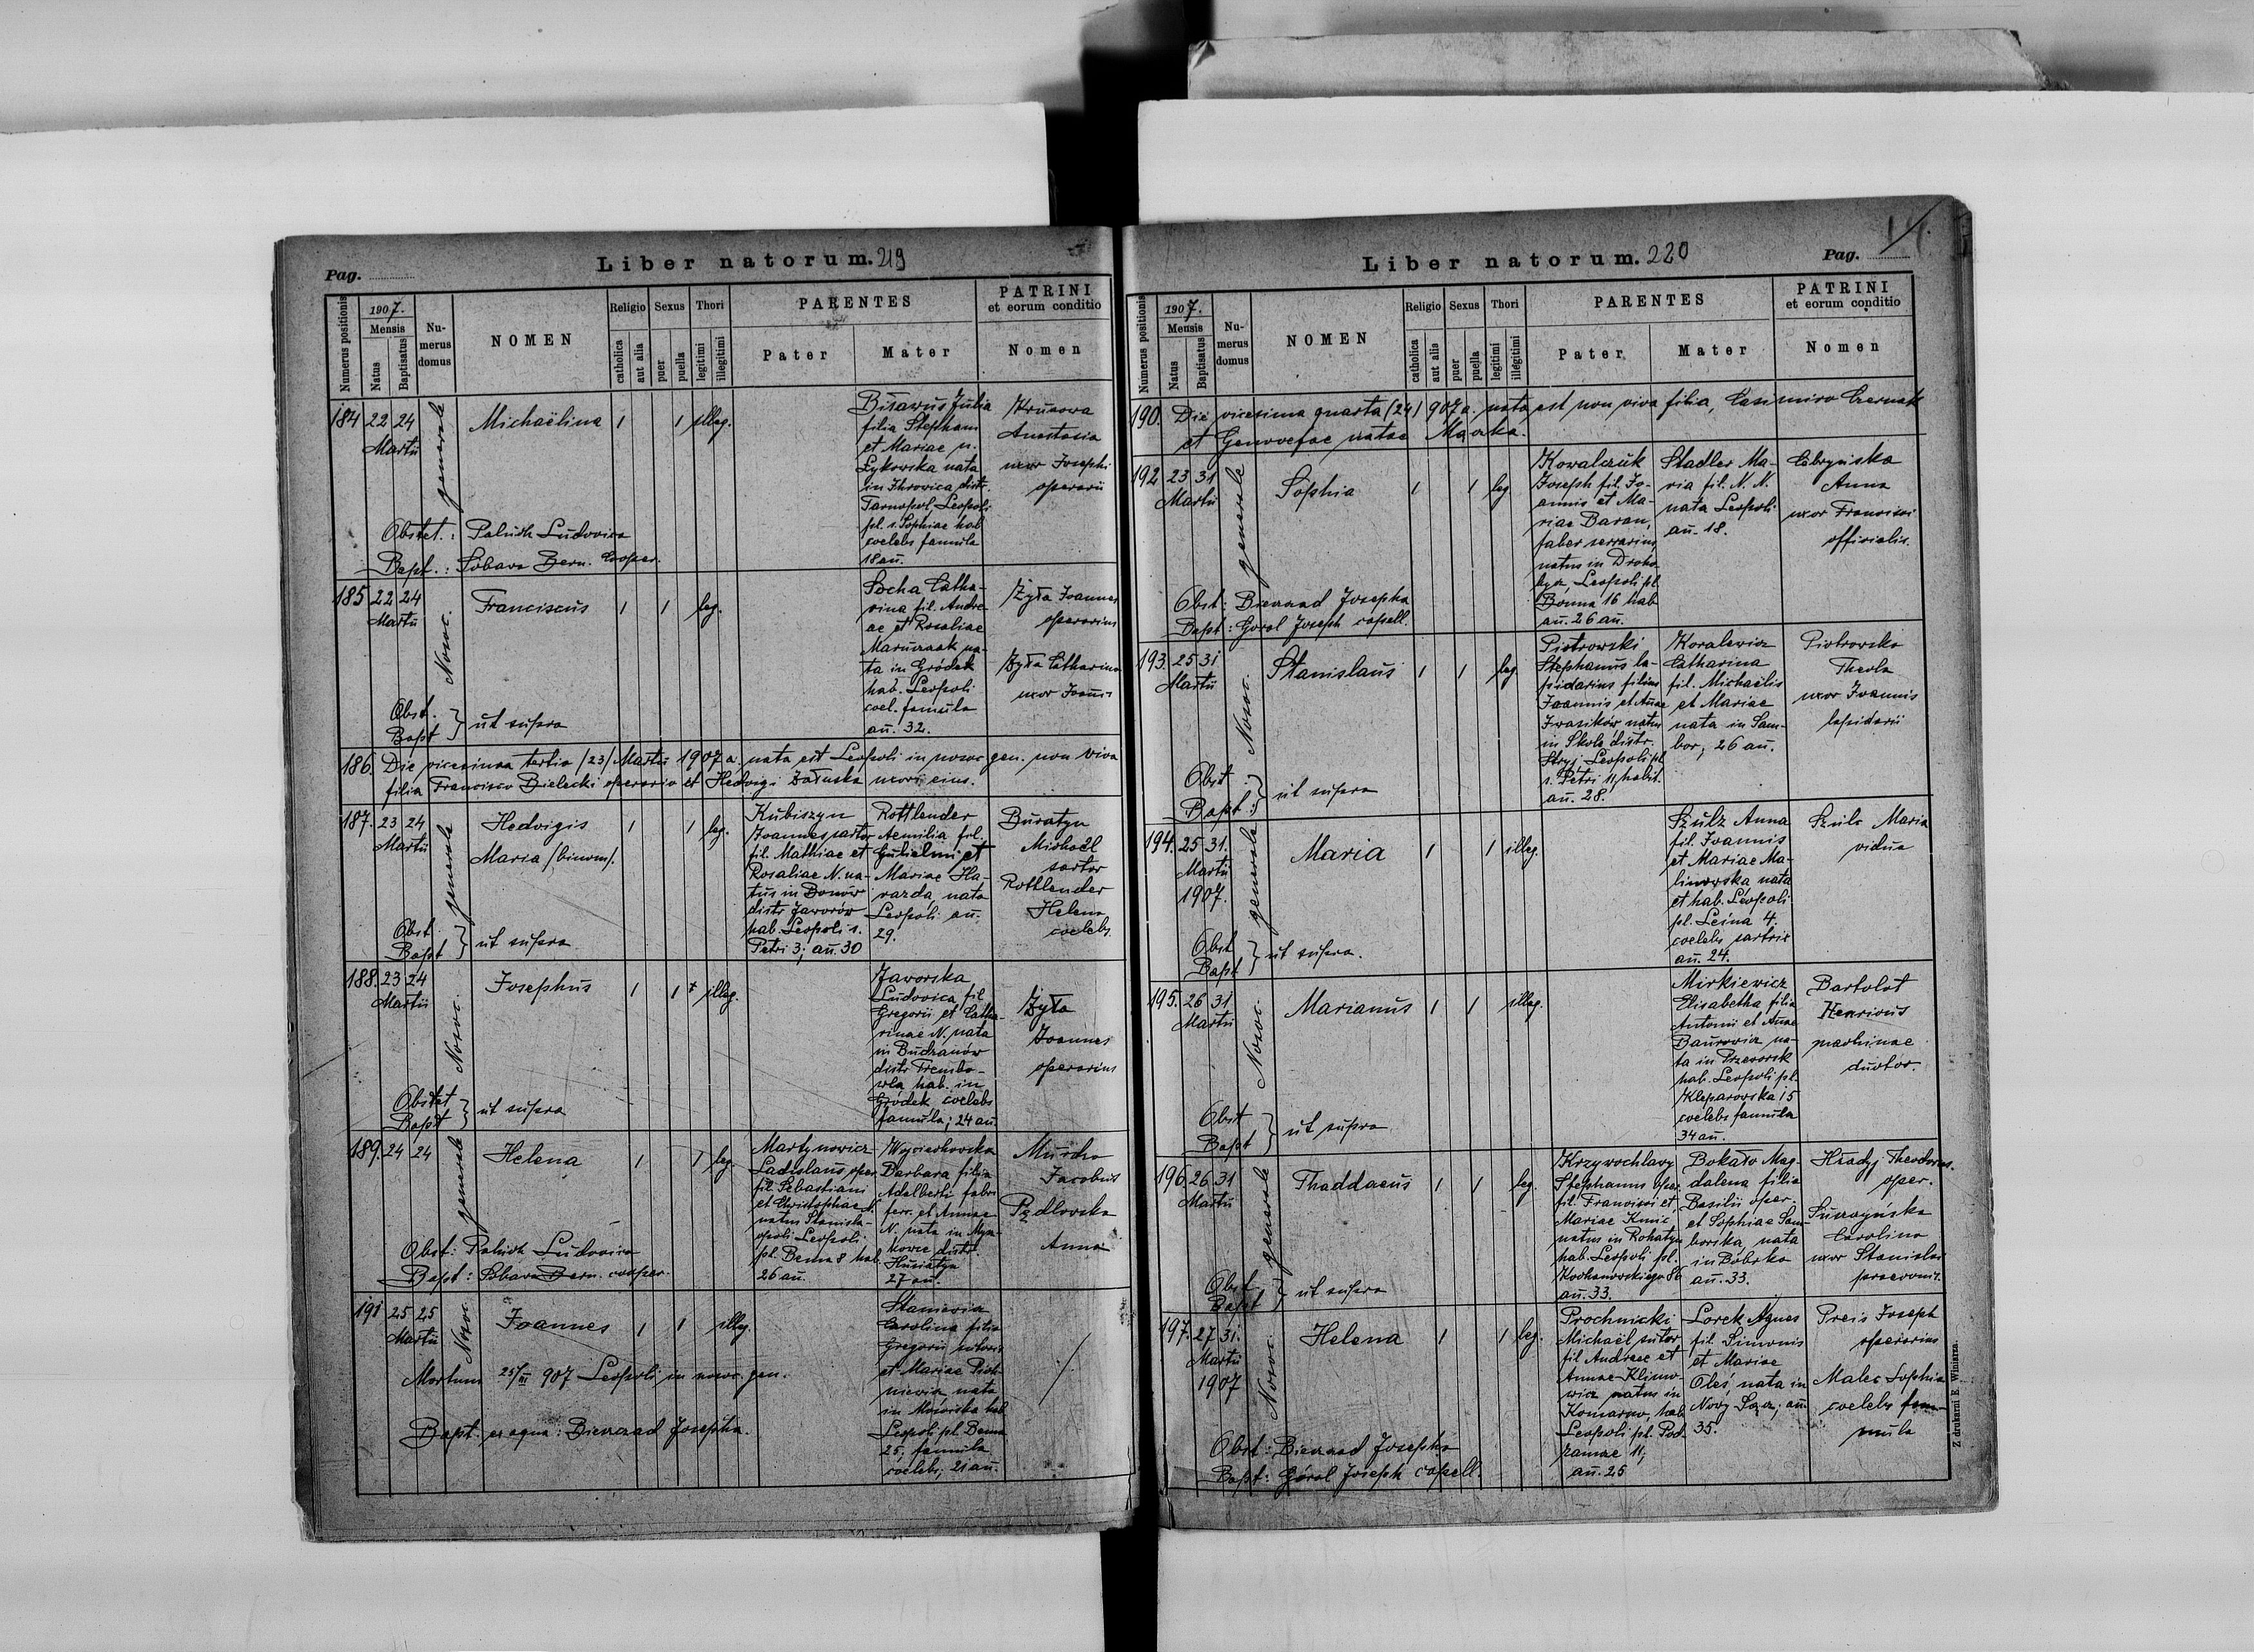 Pag.
Liber natorum. 219
Numerus positionis
1907.
Mensis
Natus
Baptisatus
Nu-
merus
domus
NOMEN
Religio
catholica
aut alia
Sexus
puer
puella
Thori
legitimi
illegitimi
PARENTES
Pater
Mater
PATRINI
et eorum conditio
Nomen
184
22 24
Martii
generale
Michaëlina
1
1
illeg.
Bisarus Julia
filia Stephani
et Mariae n.
Łykowska nata
in Ihrowica distr.
Tarnopol, Leopoli
pl. s. Sophiae hab
coelebs famula
18 añ.
Krusowa
Anastasia
uxor Josephi
operarii
Obstet.: Paluch Ludovica
Bapt.: Sobawa Bern. Cooper.
185
22 24
Martii
Nosoc.
Franciscus
1
1
leg.
Socha Catha-
rina fil. Andre-
ae et Rosaliae
Maruszak na-
ta in Gródek
hab. Leopoli
coel. famula
añ. 32.
Żyła Joannes
operarius
Żyła Catharina
uxor Joannis
Obst.
Bapt } ut supra
186. Die vicesima tertia /23/ Martii 1907 a. nata est Leopoli in nosoc. gen. non viva
filia Francisco Bielecki operario et Hedvigi Załuska uxori eius.
187.
23 24
Martii
generale
Hedvigis
Maria /binom/.
1
1
leg.
Kubiszyn
Joannes sartor
fil. Mathiae et
Rosaliae N. na-
tus in Bonów
distr Jaworów
hab. Leopoli s.
Petri 3; añ. 30
Rottlender
Aemilia fil.
Gulielmi et
Mariae Ha-
warda, nata
Leopoli añ.
29.
Buratyn
Michaël
sartor
Rottlender
Helena
coelebs
Obst
Bapt } ut supra
188.
23 24
Martii
Nosoc.
Josephus
1
1
illeg.
Jaworska
Ludovica fil.
Gregorii et Catha-
rinae N. nata
in Budzanów
distr Trembo-
wla hab. in
Gródek coelebs
famula; 24 añ.
Żyła
Joannes
operarius
Obstet
Bapt } ut supra
189.
24 24
generale
Helena
1
1
leg.
Martynowicz
Ladislaus oper.
fil. Sebastiani
et Christophae N.
natus Stanisla-
opoli Leopoli
pl. Bema 8 hab
26 añ.
Wojciechowska
Barbara filia
Adalberti fabri
ferr. et Annae
N. nata in Mysz-
kowce distr.
Husiatyn
27 añ.
Murcho
Jacobus
Anna
Obst: Paluch Ludovica
Bapt: Sobawa Bern. cooper.
191
25 25
Martii
Nosoc.
Joannes
1
1
illeg.
Staniewicz
Carolina filia
Gregorii sutoris
et Mariae
niewicz nata
in Mościska hab
Leopoli pl. Bema
25, famula
coelebs; 21 añ.
Mortuus 25/III 907 Leopoli in nosoc. gen.
Bapt. ex aqua: Bienzad Josepha.
Liber natorum. 220
Pag.
Numerus positionis
1907.
Mensis
Natus
Baptisatus
Nu-
merus
domus
NOMEN
Religio
catholica
aut alia
Sexus
puer
puella
Thori
legitimi
illegitimi
PARENTES
Pater
Mater
PATRINI
et eorum conditio
Nomen
190. Die vicesima quarta /24/ 907 a. nata est non viva filia, Casimiro Czerniak
et Genovefae natae Mazka.
192
23 31
Martii
generale
Sophia
1
1
leg
Kowalczuk
Joseph fil. Jo-
annis et Ma-
riae Baran,
faber serrarius
natus in Droho-
bycz Leopoli pl.
Bonna 16 hab
añ. 26 añ.
Stadler Ma-
ria fil. N. N.
nata Leopoli
añ. 18.
Cebryńska
Anna
uxor Francisci
officialis.
Obst: Bienzad Josepha
Bapt: Góral Joseph capell.
193.
25 31
Martii
Nosoc.
Stanislaus
1
1
leg
Piotrowski
Stephanus la-
pidarius filius
Joannis et Annae
Iwasików natus
in Skole distr.
Stryj Leopoli pl
s. Petri 11, habit.
añ. 28.
Koralewicz
Catharina
fil. Michaëlis
et Mariae
nata in Sam-
bor, 26 añ.
Piotrowska
Thecla
uxor Joannis
lapidarii
Obst.
Bapt. } ut supra
194.
25 31.
Martii
1907.
generale
Maria
1
1
illeg.
Szulz Anna
fil. Joannis
et Mariae Ma-
linowska nata
et hab. Leopoli
pl. Leśna 4.
coelebs sartrix
añ. 24.
Szulc Maria
vidua
Obst
Bapt } ut supra.
195.
26 31
Martii
Nosoc.
Marianus
1
1
illeg.
Mirkiewicz
Elisabetha filia
Antonii et Annae
Baurowicz na-
ta in Przeworsk
hab. Leopoli pl.
Kleparowska 15
coelebs famula
34 añ.
Bartolot
Henricus
machinae
ductor.
Obst
Bapt } ut supra
196.
26 31
Martii
generale
Thaddaeus
1
1
leg.
Krzywochlavy
Stephanus oper.
fil. Francisci et
Mariae Kmic
natus in Rohatyn
hab. Leopoli pl.
Kochanowskiego 86
añ. 33.
Bokało Mag-
dalena filia
Basilii oper.
et Sophiae Sam-
borska, nata
in Bóbrka
añ. 33.
Hradyj Theodorus.
oper.
Carolina
uxor Stanislai
Obst
Bapt } ut supra
197.
27 31.
Martii
1907
Nosoc.
Helena
1
1
leg.
Prochnicki
Michaël sutor
fil Andreae et
Annae Klimo-
wicz natus in
Komarno, hab
Leopoli pl. Pod-
zamcze 11,
añ. 25
Lorek Agnes
fil. Simonis
et Mariae
Oleś, nata in
Nowy Sącz; añ
35.
Preis Joseph
operarius
Malec Sophia
coelebs fam-
mula
Obst: Bienzad Josepha
Bapt: Góral Joseph capell.
Z drukarni E. Winiarza.